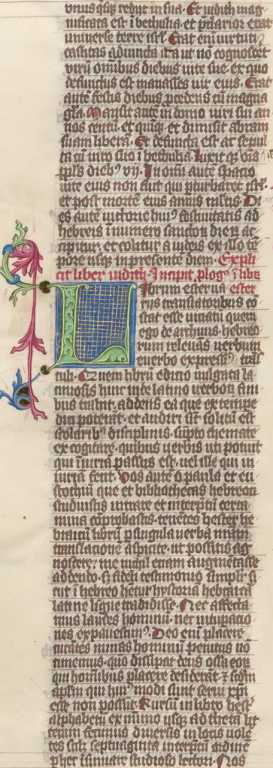 vnus qͥsqꝫ redijt in sua. Et iudith mag
nificata est ī bethulia et p̄clarior erat
vniuerse terre isrl̄. Erat eni virtuti
castitas adiuncta ita ut nō cognosc̄et
virū omnibus diebus vite sue ex quo
defunctus est manasses vir eius. Erat
autē festis diebus p̄cedens cū magna
gl̄a. Mansit autē in domo viri sui an
nos centū et quīqꝫ et dimisit abram
suam liberā. Et defuncta est ac sepul
ta cū viro suo ī bethulia. Luxitqꝫ oīs
pp̄ls dieb⁹ vij. In oī autē spacio
vite eius non fuit qui ꝑturbaret isrl̄
et post mortē eius annis multis. Di
es autē victorie hui⁹ festiuitatis ab
hebreis ī numero sanctoꝝ dieꝝ ac
cipitur et colitur a iudeis ex illo tē
pore usqꝫ in presentē diem. Expli
cit liber iudith. Incipit ꝓlog⁹ ī librū
Librum ester va ester
rijs translatoribus cō
stat esse viciatū quem
ego de archiuis hebreo
rum releuās verbum
e verbo express⁹ trās
tuli. Quem librū editio vulgata la
ciniosis hinc inde verboꝝ fini
bus trahit, addens ea que ex tempe
dici poterāt et audiri sic solitū est
scolarib⁹ disciplinis sūpto themate
excogitare quibus verbis uti potuit
qui iniuriā passus est vel ille qui in
iuriā fecit. Vos autē o paula et eu
stochiū que et bibliothecas hebreoꝝ
studuistis intrare et interpretū certa
mina cōprobastis tenētes hester he
braicū librū ꝑ singula verba nostrā
translationē aspicite ut possitis ag
noscere me nichil etiam augmētasse
addendo sꝫ fideli testimonio simplicit̄ si
cut ī hebreo hētur hystoriā hebraicā
latine ligue tradidisse. Nec affecta
mus laudes hominū nec vitupatio
nes expauescim⁹. Deo eni placere
curātes minas hominū penitus nō
timemus quō dissipat deus ossa eoꝝ
qui hominibus placere desiderāt et scdm
apl̄m qui hui⁹ modi sunt serui xp̄i
esse non possūt. Rursū in libro hest̄
alphabetū ex minio usqꝫ ad theta lit̄
teram fecimus diuersis in locis volē
tes sꝫ septuaginta interpretū ordinē
ꝑ hec insinuare studioso lectori. Nos